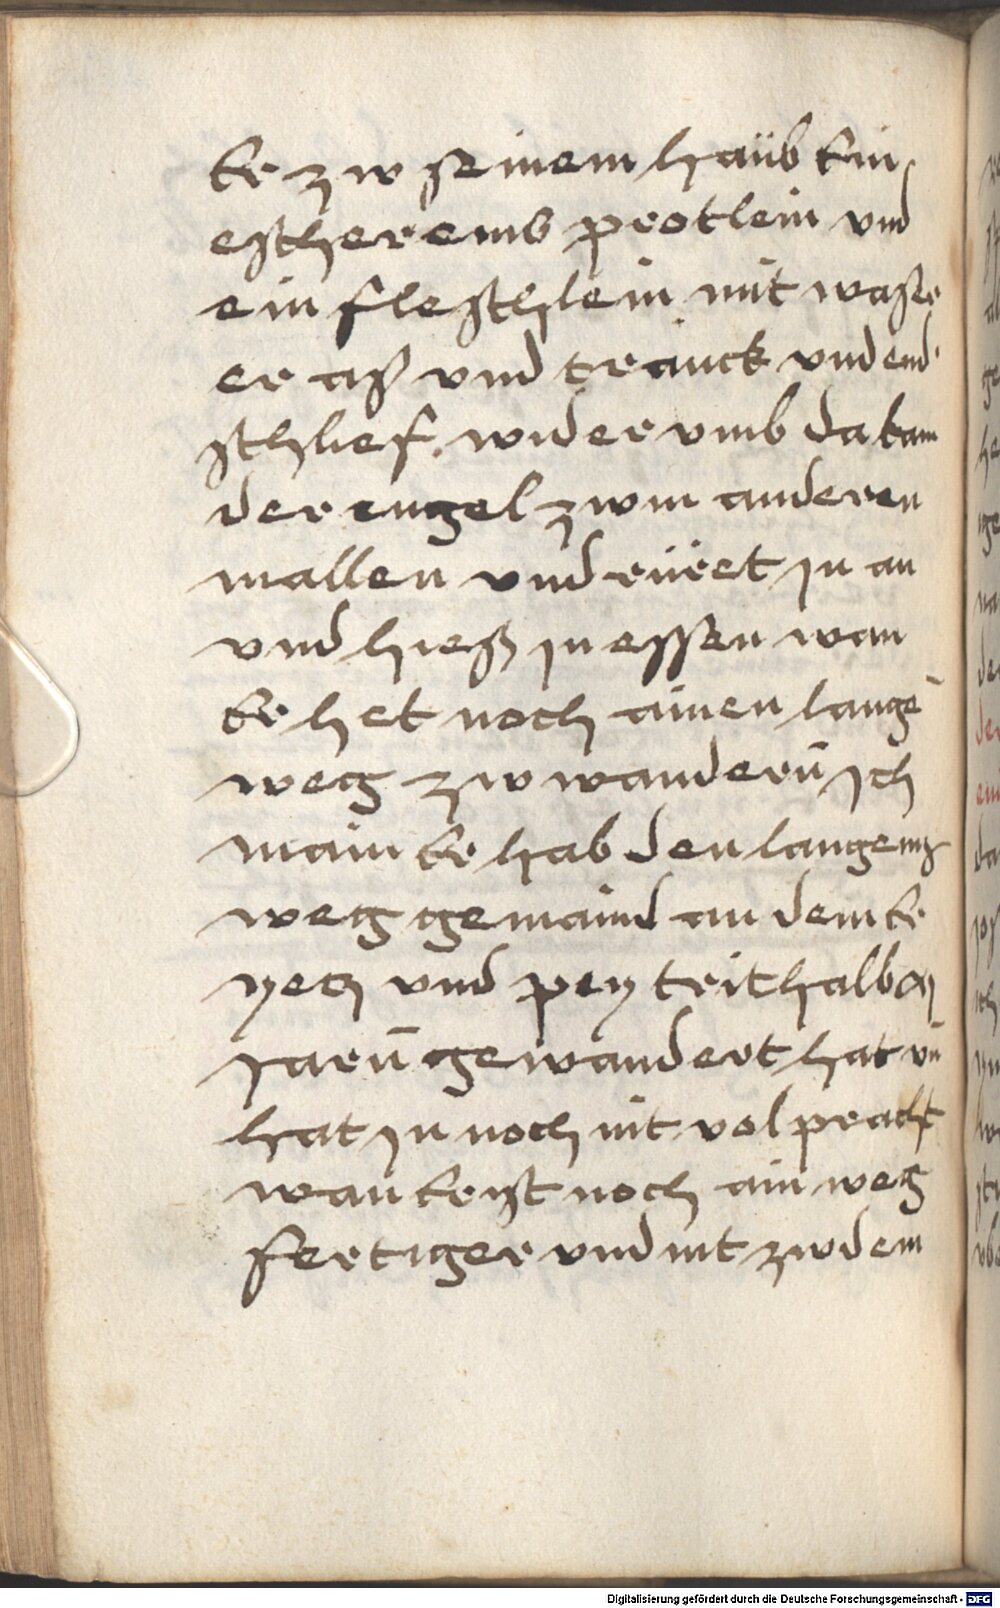 Er zw seinem haüb Ein
eschereinß protlein vnd
ein fleschlein mit waser
er aß vnd tranck vnd end
schlief widervmb da kam
der engel zwm anderen
mallen vnd rüret jn an
vnd hieß jn essen wan
Er het noch ainen lange᷑
weg zw wandern̄ jch
main Er hab den langenn
weg gemaind an dem Er
yetz vnd pey trithalb
jarn̄ gewandert hat vn̄
hat jn noch nit volpracht
wan Er jst noch ain weg
fertiger vnd nit zw dem
Digitalisierung gefördert durch die Deutsche Forschungsgemeinschaft - DFG